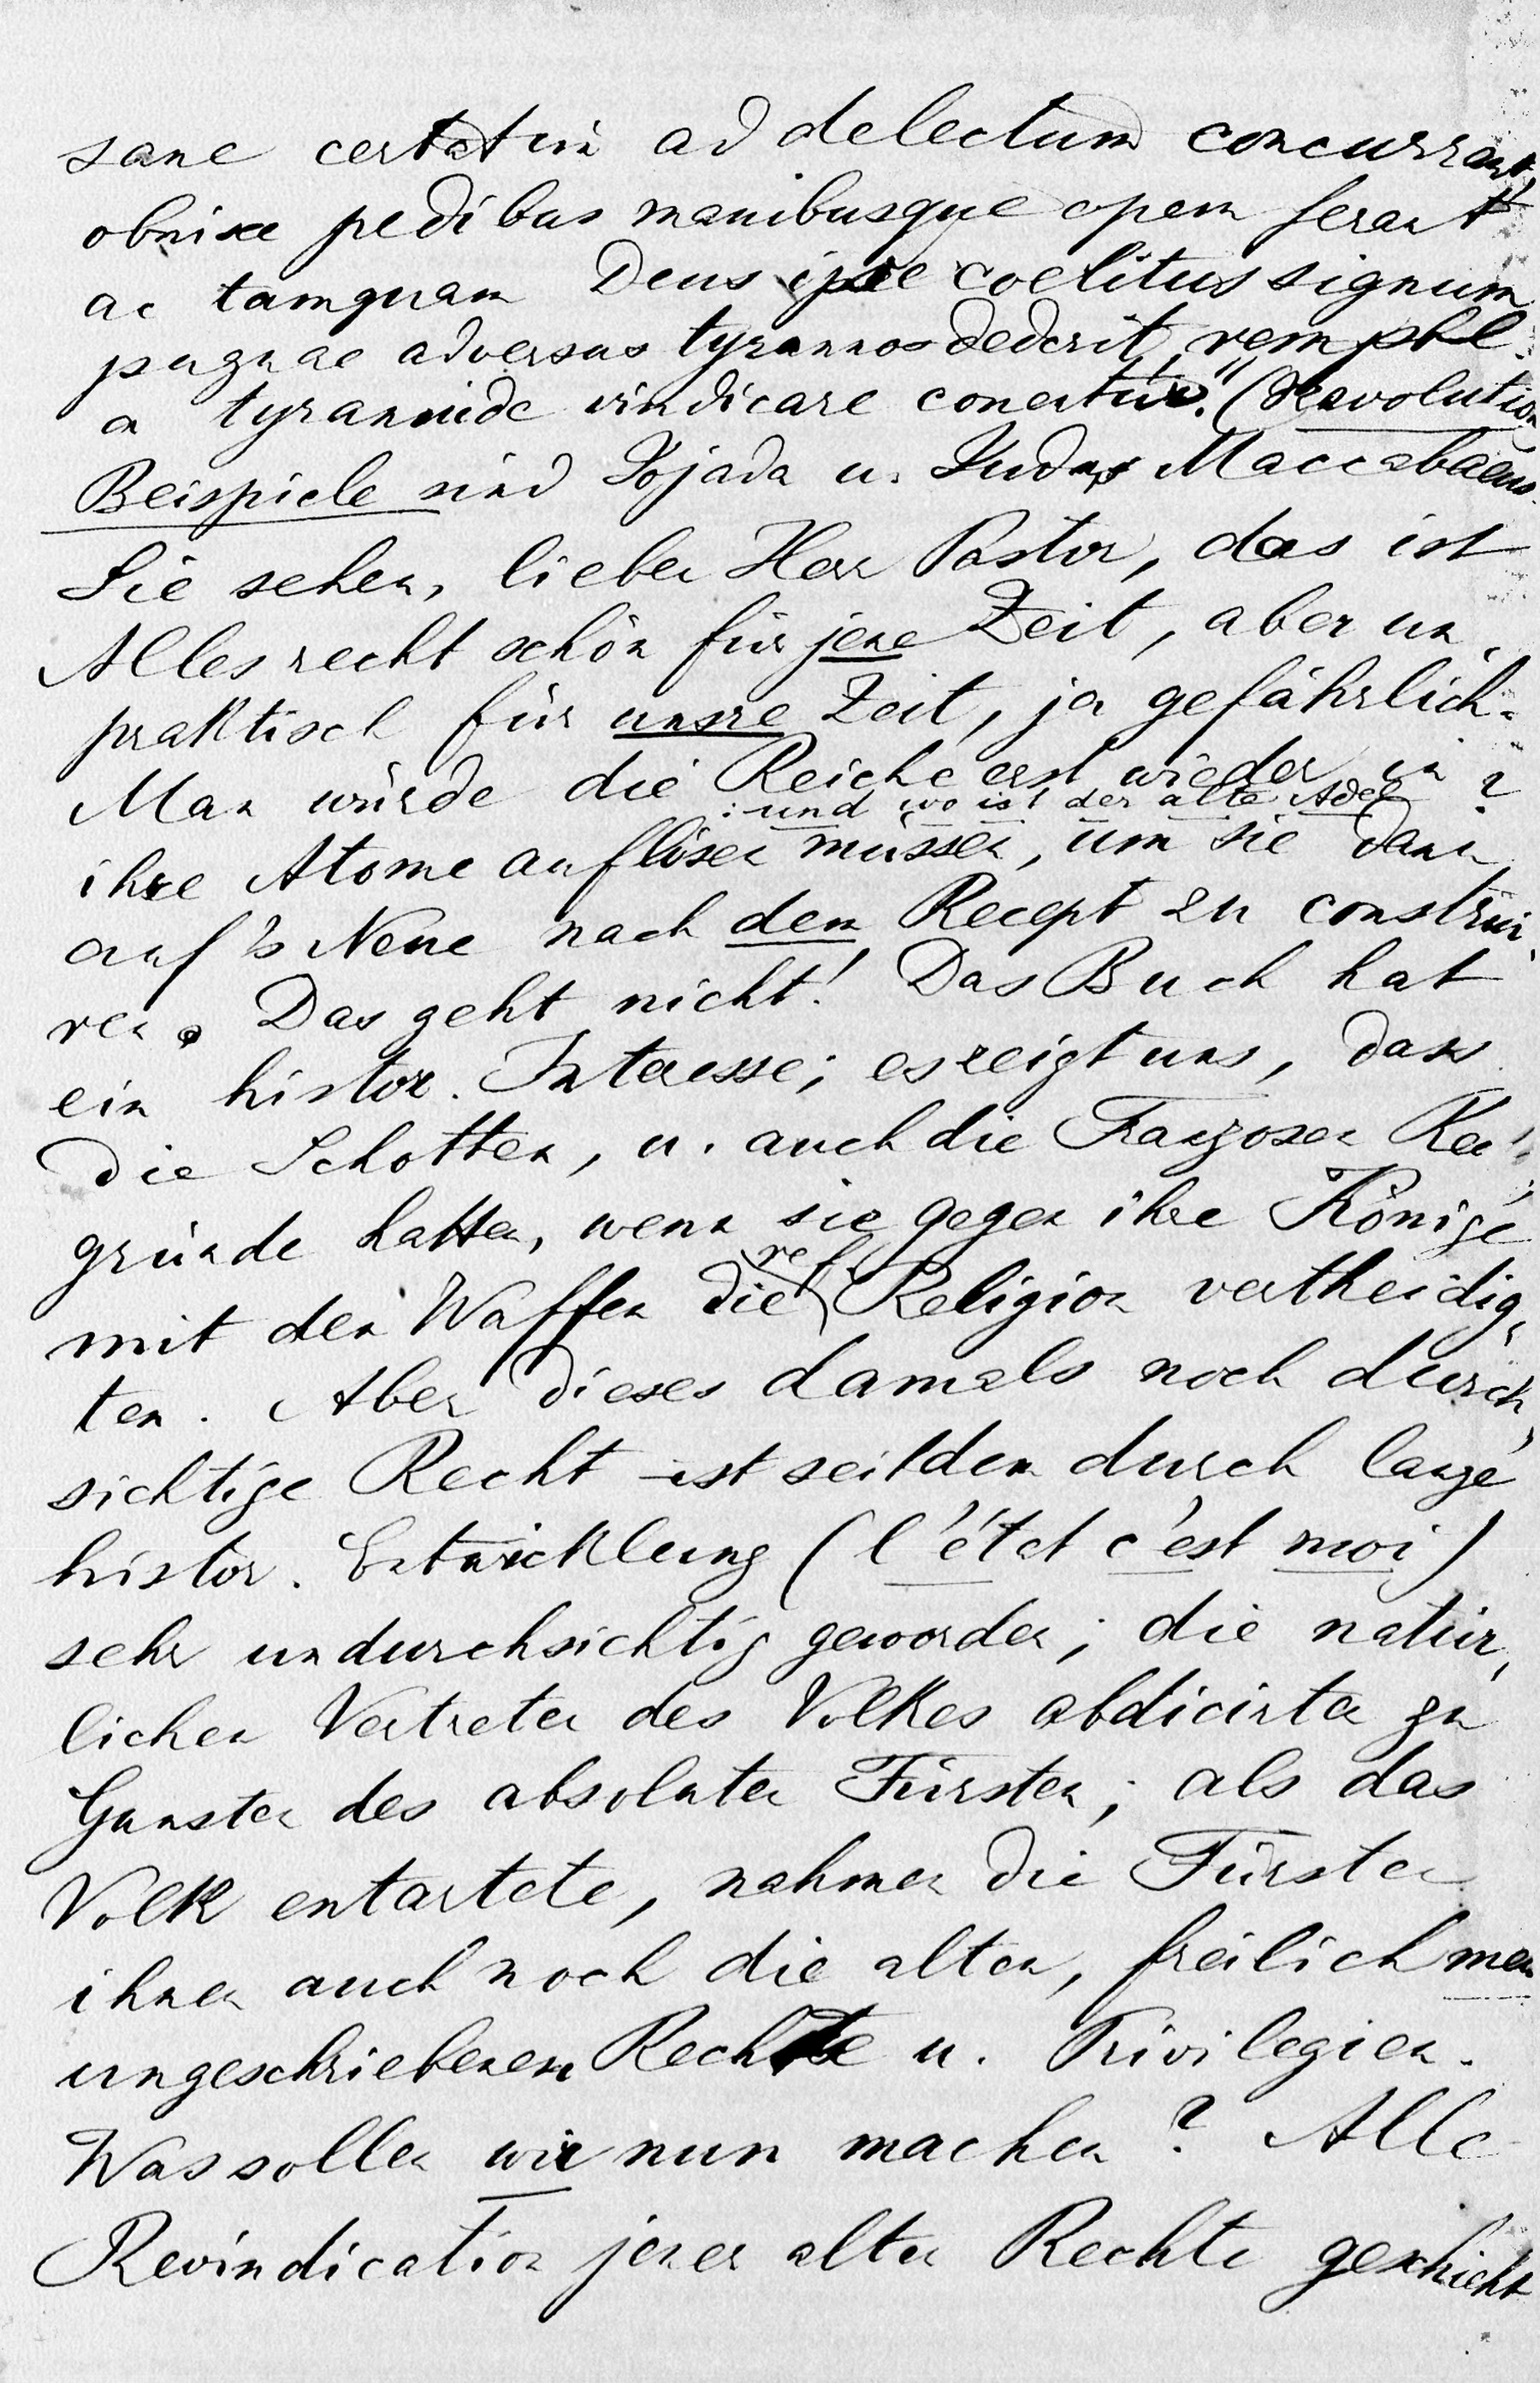 sane certatim ad delectum concurrant,
obnixe pedibus manibusque opem ferant
ac tamquam Deus ipse coelitus signum
pugnae adversus tyrannos dederit, remp
a tyrannide vindicare conentur." (Revolution
Beispiele sind Jojada u. Judas Maccabaeus.
Sie sehen, lieber Herr Pastor, das ist
Alles recht schön für jene Zeit, aber un-
praktisch für unsre Zeit, ja gefährlich.
Man würde die Reiche erst wieder in
: und wo ist der alte Adel?
ihre Atome auflösen müssen, um sie dann
auf's Neue nach dem Recept zu construi-
ren. Das geht nicht! Das Buch hat
ein histor. Interesse; es zeigt uns, dass
die Schotten, u. auch die Franzosen
gründe hatten, wenn sie gegen ihre Könige
mit den Waffen die ref. Religion vertheidig-
ten. Aber dieses damals noch durch-
sichtige Recht ist seitdem durch lange
histor. Entwicklung (l'état c'est moi)
sehr undurchsichtig geworden; die natür-
lichen Vertreter des Volkes abdicirten zu
Gunsten des absoluten Fürsten; als das
Volk entartete, nahmen die Fürsten
ihnen auch noch die alten, freilich
ungeschriebenen Rechte u. Privilegien.
Was sollen wir nun machen? Alle
Revindication jener alten Rechte geschieht